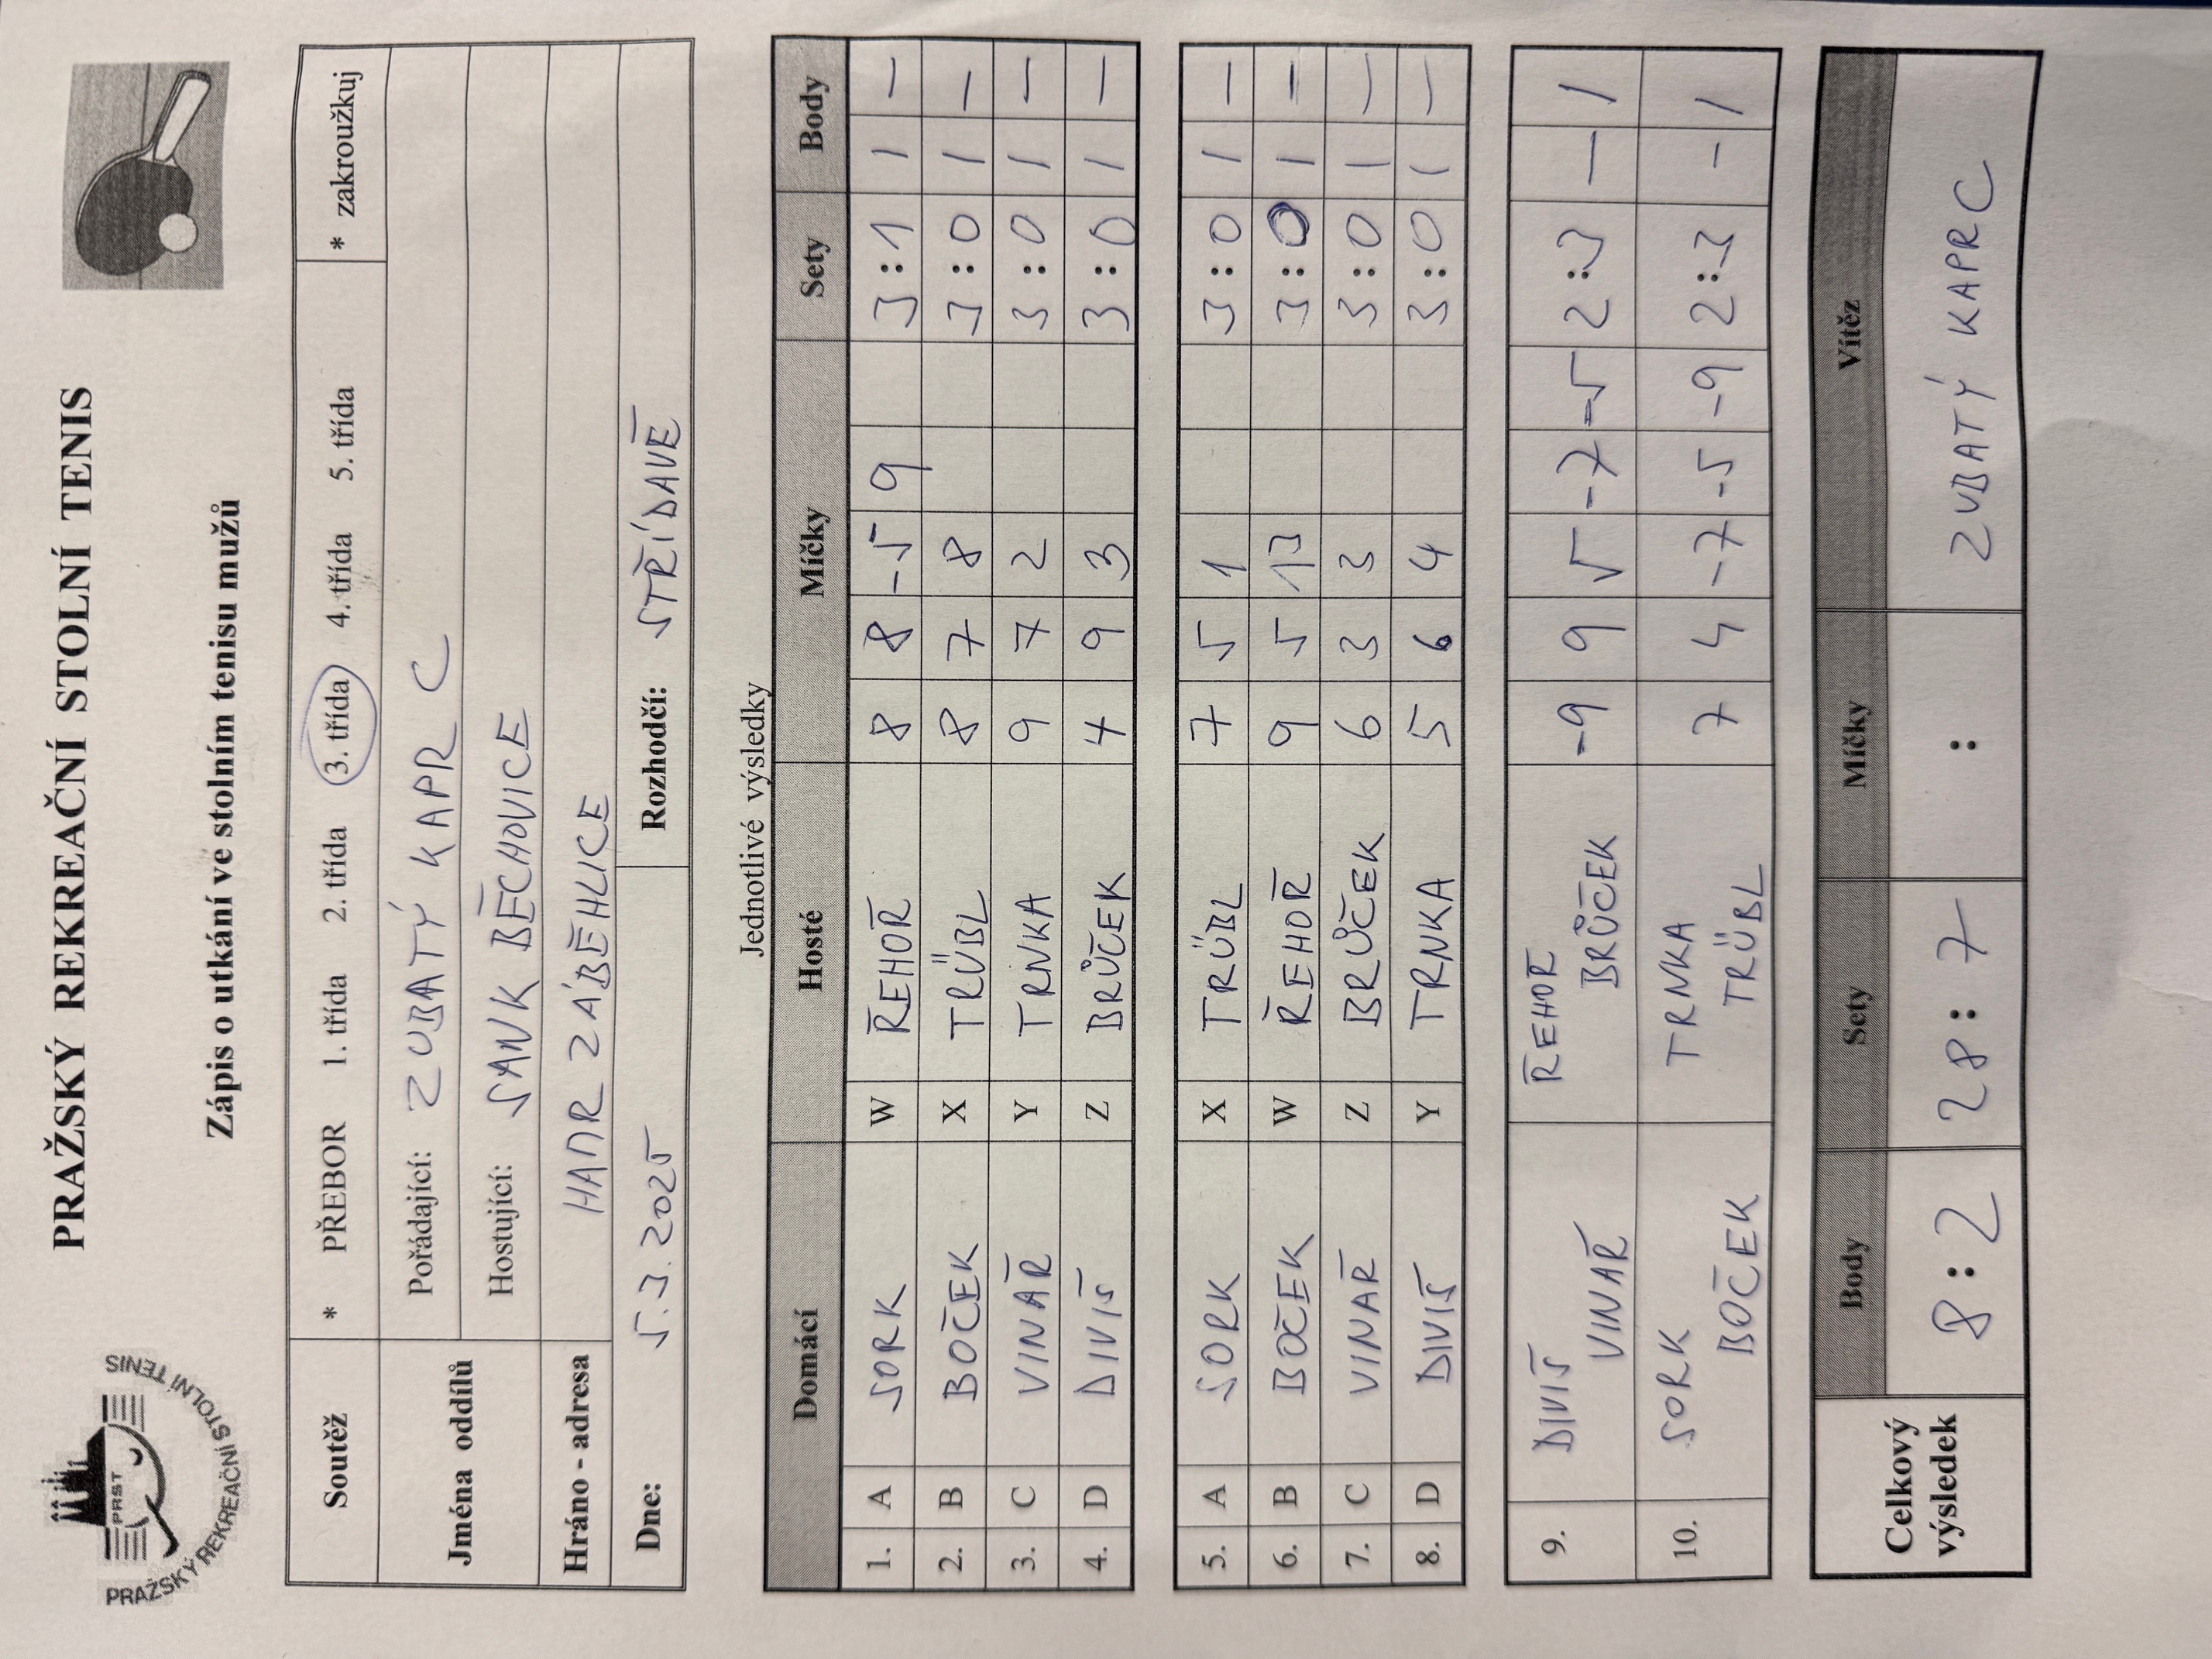 PRAŽSKÝ REKREAČNÍ STOLNÍ TENIS
PRST
PRAŽSKÝ REKREAČNÍ STOLNÍ TENIS
Zápis o utkání ve stolním tenisu mužů
Soutěž * PŘEBOR 1. třída 2. třída 3. třída 4. třída 5. třída * zakroužkuj
Jména oddílů Pořádající: ZUBATÝ KAPR C
Hostující: SANK BĚCHOVICE
Hráno - adresa HAMR ZÁBĚHLICE
Dne: 5.3.2025 Rozhodčí: STŘÍDAVĚ
Jednotlivé výsledky
Domácí Hosté Míčky Sety Body
1. A SORK W ŘEHOŘ 8 8 -5 9 3:1 1 —
2. B BOČEK X TRÜBL 8 7 8 3:0 1 —
3. C VINAŘ Y TRNKA 9 7 2 3:0 1 —
4. D DIVIŠ Z BRŮČEK 4 9 3 3:0 1 —
5. A SORK X TRÜBL 7 5 1 3:0 1 —
6. B BOČEK W ŘEHOŘ 9 5 13 3:0 1 —
7. C VINAŘ Z BRŮČEK 6 3 3 3:0 1 —
8. D DIVIŠ Y TRNKA 5 6 4 3:0 1 —
9. DIVIŠ VINAŘ ŘEHOŘ BRŮČEK -9 9 5 -7 -5 2:3 — 1
10. SORK BOČEK TRNKA TRÜBL 7 4 -7 -5 -9 2:3 — 1
Celkový výsledek Body Sety Míčky Vítěz
8:2 28:7 : ZUBATÝ KAPR C